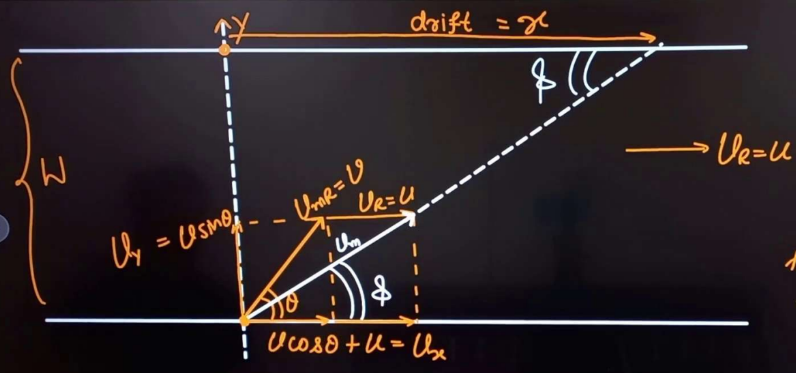 drift = x
y
ϕ
W
V_R = u
V_mR = v
V_R = u
V_y = v sinθ
V_m
θ
ϕ
v cosθ + u = V_x